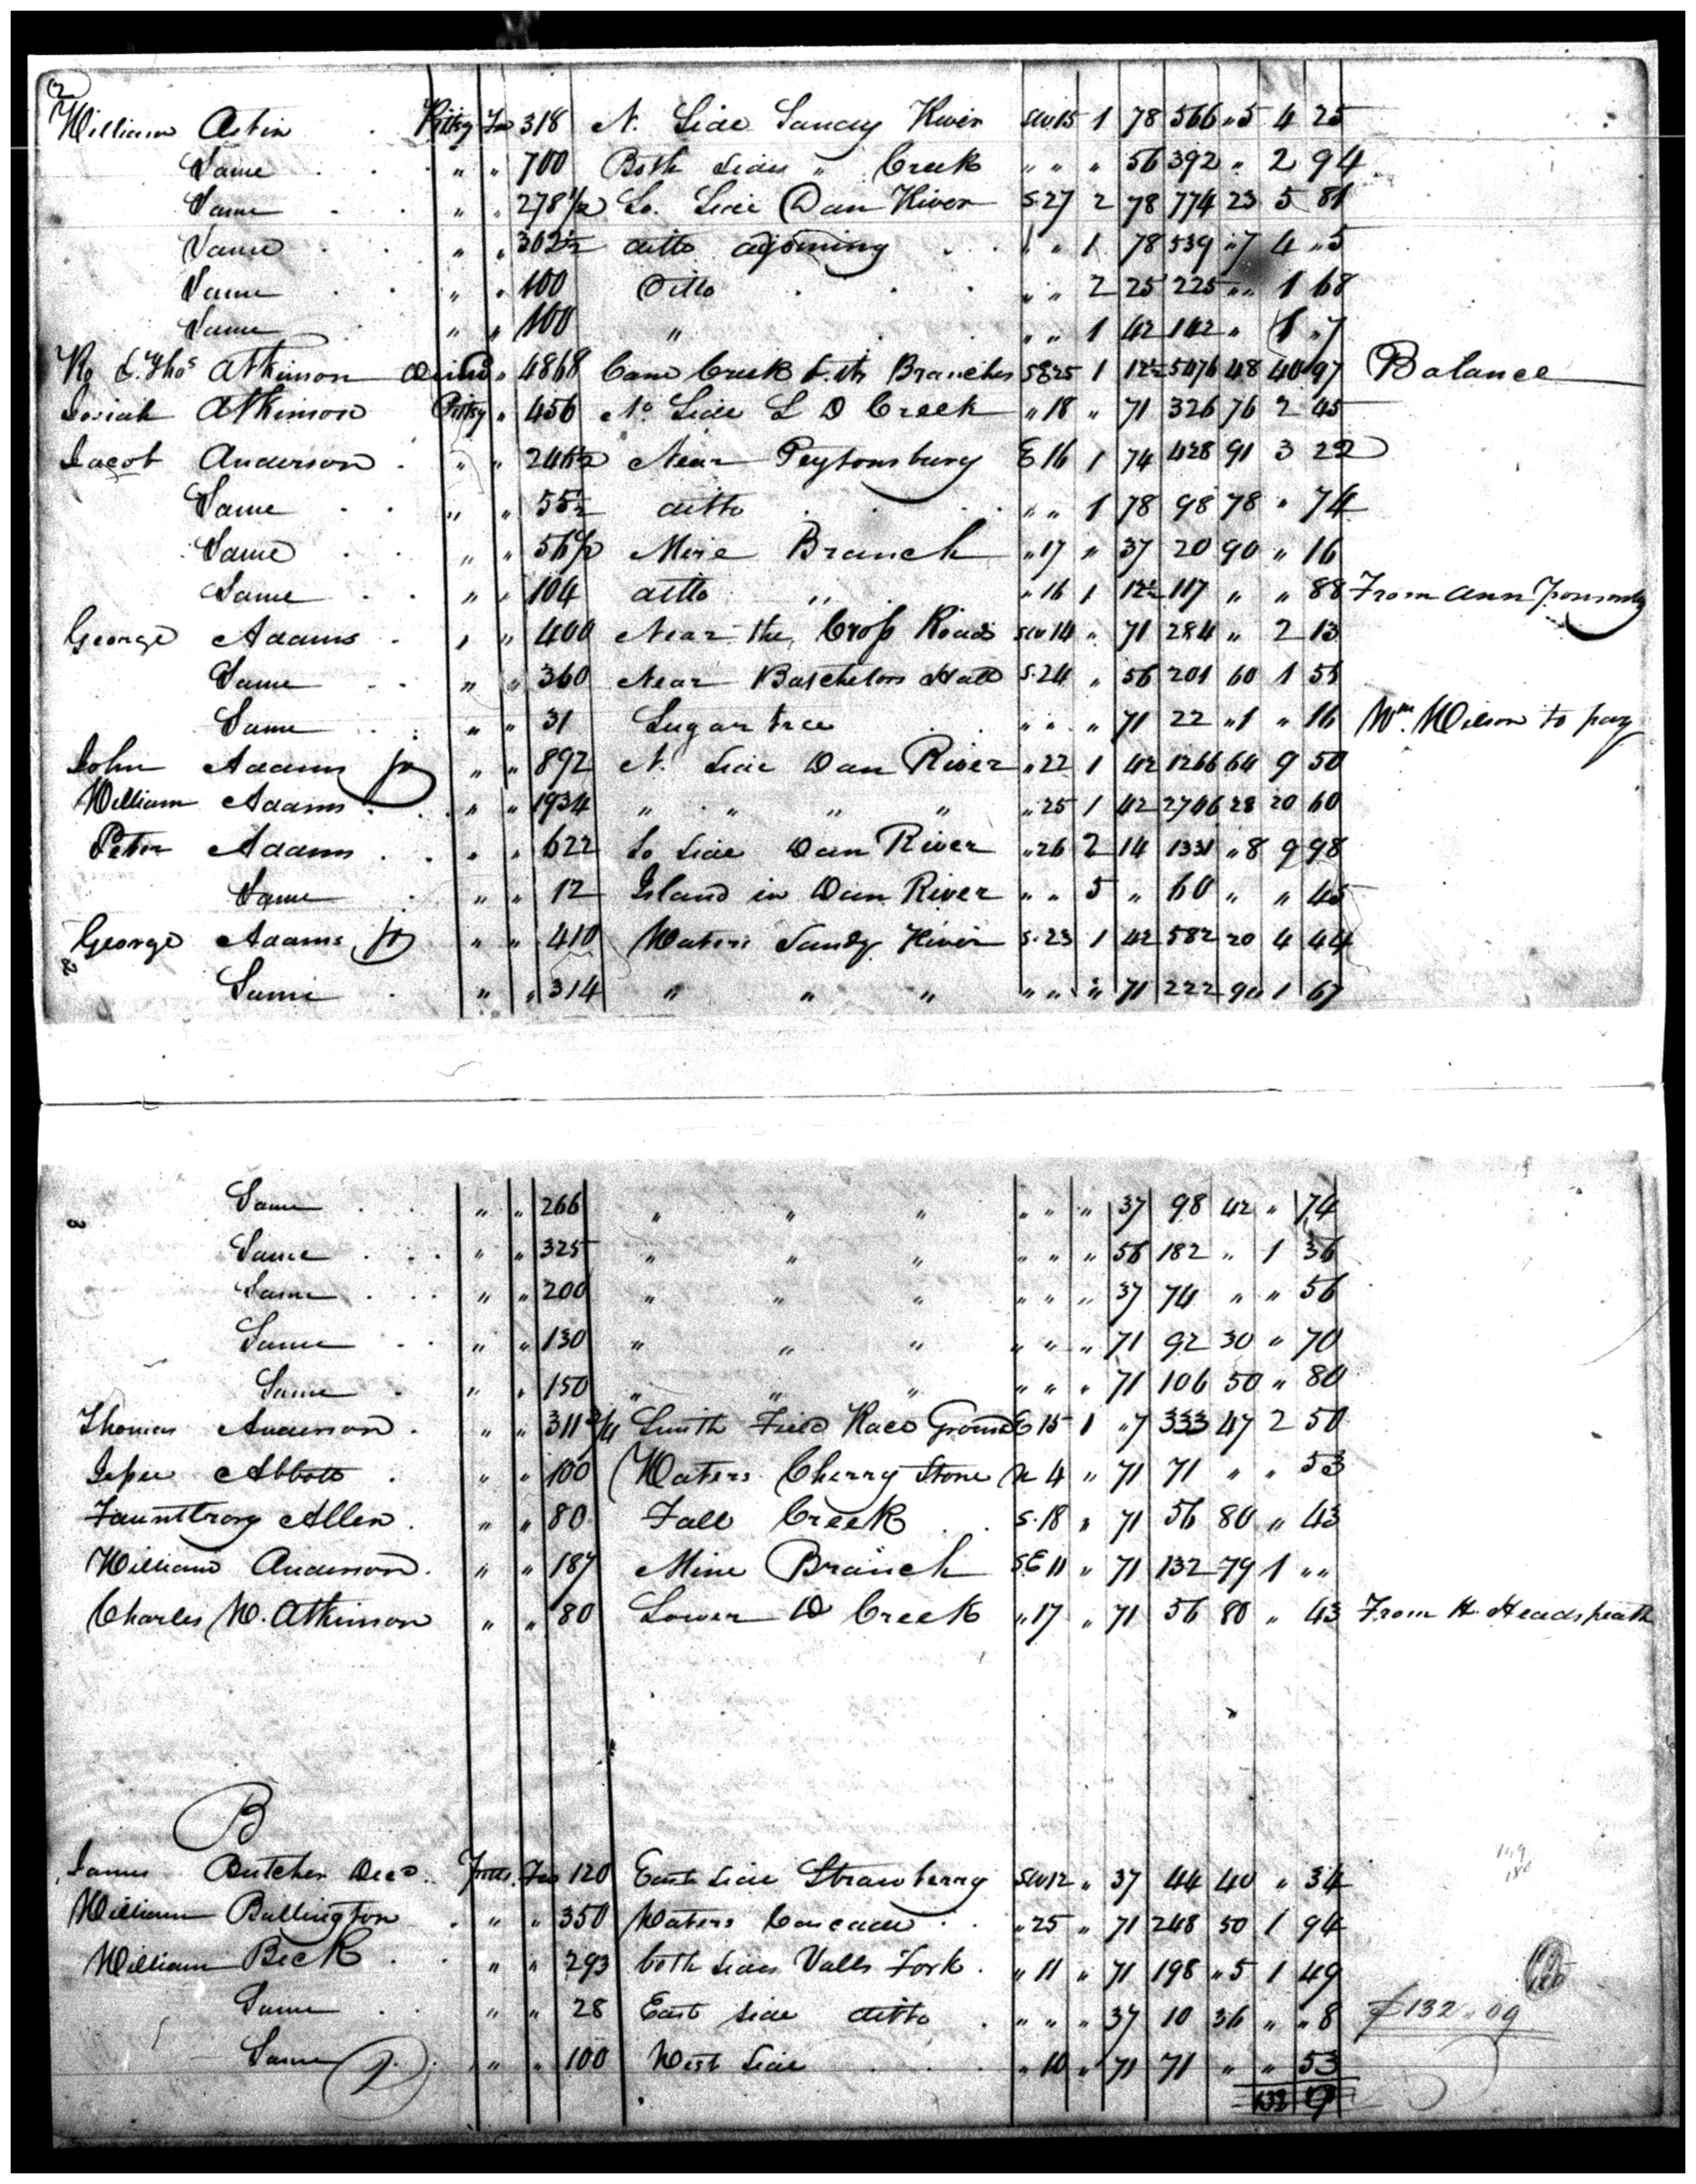 2
William Astin . Pittsy Fee 318 N. Side Sandy River SW 15 1 78 566 " 5 4 25
Same . . . " " 700 Both sides " Creek " " " 56 392 " 2 94
Same . . " " 278 1/2 So. Side Dan River S. 27 2 78 774 23 5 81
Same . . " " 302 1/2 ditto adjoining . . " " 1 78 539 " 7 4 " 5
Same . . " " 100 Ditto . . . " " 2 25 225 " " 1 68
Same . . " " 100 " . . " " 1 42 142 " 1 " 7
Ro & Thos Atkinson " 4868 Cane Creek & its Branches SE 25 1 12 1/2 5476 48 40 97 Balance
Josiah Atkinson Pittsy " 456 No Side L D Creek " 18 " 71 326 76 2 45
Jacob Anderson . " " 246 1/2 Near Peytonsburg E 16 1 74 428 91 3 22
Same . . " " 55 1/2 ditto . . " " 1 78 98 78 " 74
Same . . " " 56 1/2 Mire Branch " 17 " 37 20 90 " 16
Same . . " " 104 ditto " . " 16 1 12 1/2 117 " " 88 From Ann
George Adams . " " 400 Near the Cross Roads SW 14 " 71 284 " 2 13
Same . . " " 360 Near Batchelors Hall S. 24 " 56 201 60 1 55
Same . . " " 31 Sugar tree . . " " " 71 22 " 1 " 16 Wm. Wilson to pay
John Adams jr " " 892 N. Side Dan River " 22 1 42 1266 64 9 50
William Adams . . " " 1934 " " " " " 25 1 42 2746 28 20 60
Peter Adams . . " " 622 So Side Dan River " 26 2 14 1331 " 8 9 98
Same . " " 12 Island in Dan River " " 5 " 60 " " 45
George Adams jr " " 410 Waters Sandy River S. 23 1 42 582 20 4 44
Same . " " 314 " " " " " " 71 222 94 1 67
Same . . " " 266 " " " " " " 37 98 42 " 74
Same . . . " " 325 " " " " " " 56 182 " 1 36
Same . . . " " 200 " " " " " " 37 74 " " 56
Same . . " " 130 " " " " " " 71 92 30 " 70
Same . " " 150 " " " " " " 71 106 50 " 80
Thomas Anderson . " " 311 3/4 Smith Field Race Ground E 15 1 " 7 333 47 2 50
Jesse Abbott . " " 100 Waters Cherry Stone N 4 " 71 71 " " 53
Fauntleroy Allen . " " 80 Fall Creek . . S. 18 " 71 56 80 " 43
William Anderson . " " 187 Mine Branch SE 11 " 71 132 79 1 " "
Charles W. Atkinson " " 80 Lower D Creek " 17 " 71 56 80 " 43 From H. Headspeath
B
James Butcher Decd. Pitts. Fee 120 East Side Strawberry SW 12 " 37 44 40 " 34
William Bullington . " " 350 Waters Cascade . . " 25 " 71 248 50 1 94
William Beck . . " " 293 both sides Valls Fork . " 11 " 71 198 " 5 1 49
Same . . " " 28 East side ditto . " " " 37 10 36 " " 8 $132 .. 09
Same " " 100 West Side . . . " 10 " 71 71 " " 53
132 9